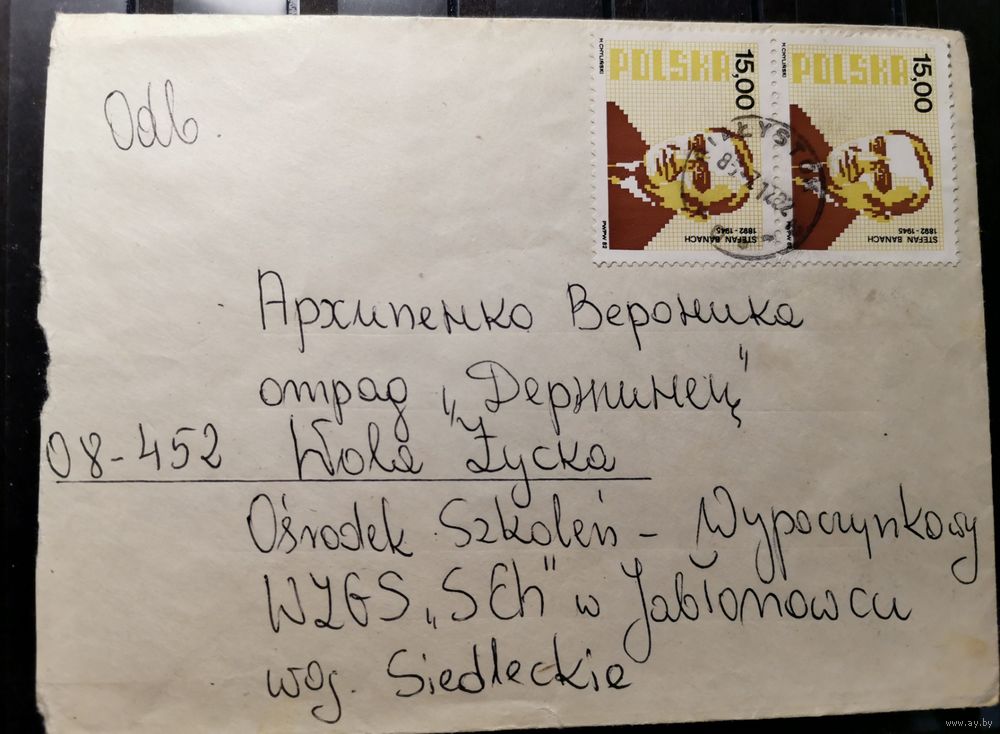 Odb.
H. CHYLIŃSKI
POLSKA
15,00
STEFAN BANACH
1892 - 1945
PWPW 82
H. CHYLIŃSKI
POLSKA
15,00
STEFAN BANACH
1892 - 1945
PWPW 82
Архипенко Вероника
отрад „Держинец"
08-452 Wola Życka
Ośrodek Szkoleń - Wypoczynkowy
WZGS „SCh" w Jabłonowcu
woj. Siedleckie
www.ay.by